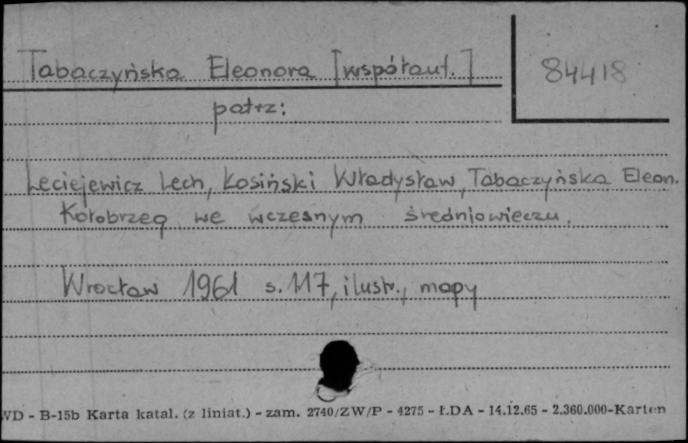 Tabaczyńska Eleonora [współaut.]
84418
patrz:
Leciejewicz Lech, Łosiński Władysław, Tabaczyńska Eleon.
Kołobrzeg we wczesnym średniowieczu.
Wrocław 1961 s. 117, ilustr., mapy
WD - B-15b Karta katal. (z liniat.) - zam. 2740/ZW/P - 4275 - ŁDA - 14.12.65 - 2.360.000-Karten